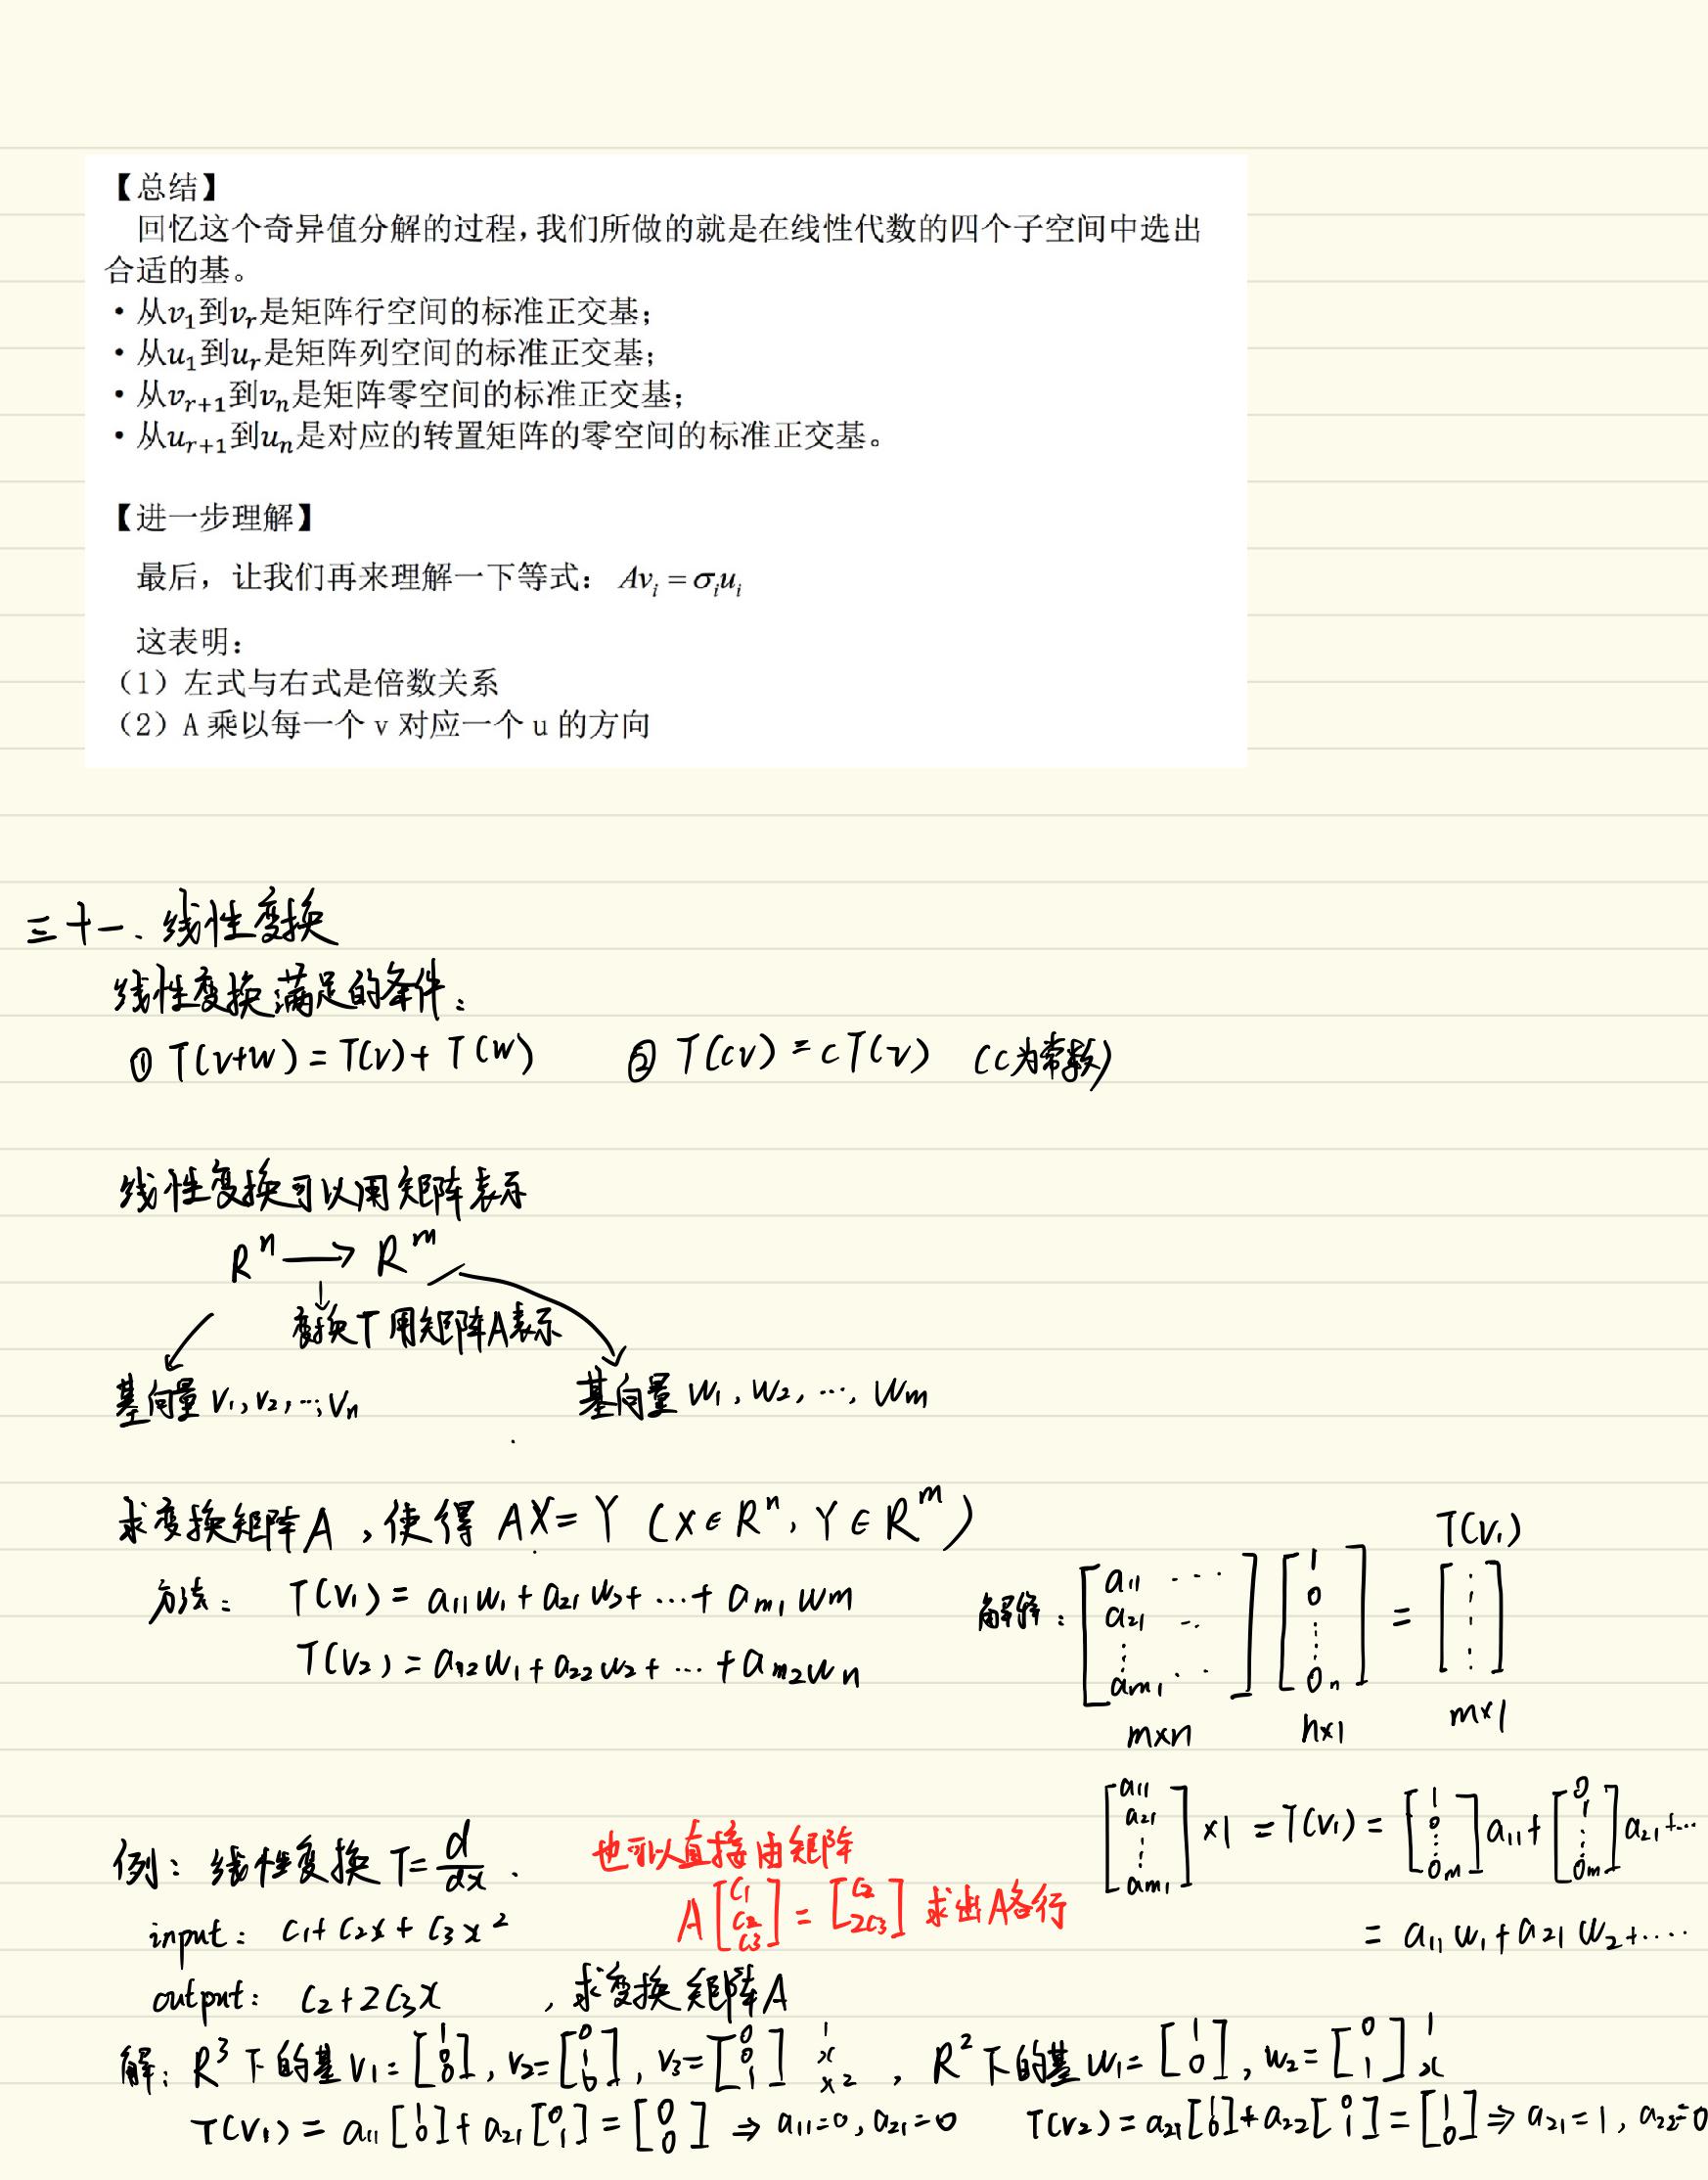 【总结】
回忆这个奇异值分解的过程，我们所做的就是在线性代数的四个子空间中选出
合适的基。
• 从v₁到vᵣ是矩阵行空间的标准正交基；
• 从u₁到uᵣ是矩阵列空间的标准正交基；
• 从vᵣ₊₁到vₙ是矩阵零空间的标准正交基；
• 从uᵣ₊₁到uₙ是对应的转置矩阵的零空间的标准正交基。
【进一步理解】
最后，让我们再来理解一下等式： Avᵢ = σᵢuᵢ
这表明：
（1）左式与右式是倍数关系
（2）A 乘以每一个 v 对应一个 u 的方向
三十一、线性变换
线性变换满足的条件：
① T(v+w) = T(v) + T(w) ② T(cv) = cT(v) (c为常数)
线性变换可以用矩阵表示
Rⁿ → Rᵐ
变换T用矩阵A表示
基向量 v₁, v₂, …, vₙ 基向量 w₁, w₂, …, wₘ
求变换矩阵A，使得 AX = Y (X ∈ Rⁿ, Y ∈ Rᵐ)
方法： T(v₁) = a₁₁w₁ + a₂₁w₂ + … + aₘ₁wₘ
T(v₂) = a₁₂w₁ + a₂₂w₂ + … + aₘ₂wₙ
T(v₁)
解释： [a₁₁ … a₂₁ … ⋮ aₘ₁ …] [1 0 ⋮ 0ₙ] = [⋮]
m×n n×1 m×1
[a₁₁ a₂₁ ⋮ aₘ₁] ×1 = T(v₁) = [1 0 ⋮ 0ₘ] a₁₁ + [0 1 ⋮ 0ₘ] a₂₁ + …
= a₁₁w₁ + a₂₁w₂ + …
例：线性变换 T = d/dx .
也可以直接由矩阵
A [c₁ c₂ c₃] = [c₂ 2c₃] 求出A各行
input： c₁ + c₂x + c₃x²
output： c₂ + 2c₃x ，求变换矩阵A
解：R³下的基 v₁ = [1 0 0], v₂ = [0 1 0], v₃ = [0 0 1] 1 x x² ， R²下的基 w₁ = [1 0], w₂ = [0 1] 1 x
T(v₁) = a₁₁ [1 0] + a₂₁ [0 1] = [0 0] ⇒ a₁₁=0, a₂₁=0 T(v₂) = a₂₁ [1 0] + a₂₂ [0 1] = [1 0] ⇒ a₂₁=1, a₂₂=0